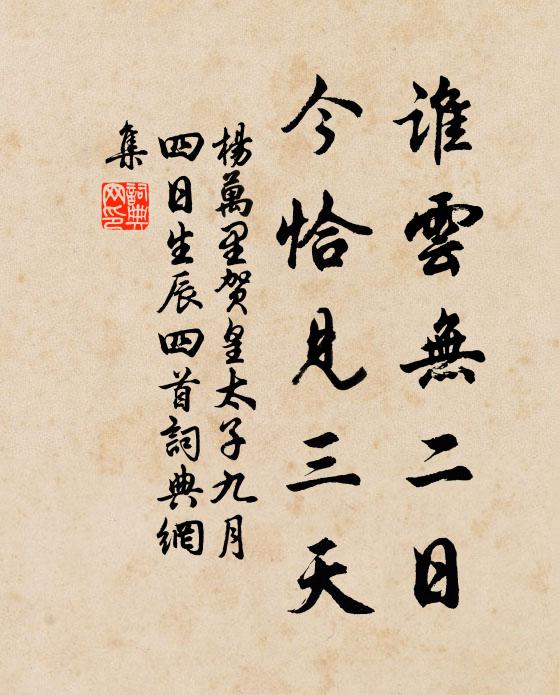 誰雲無二日
今恰見三天
楊萬里賀皇太子九月
四日生辰四首詞典網
集
詞典
网印